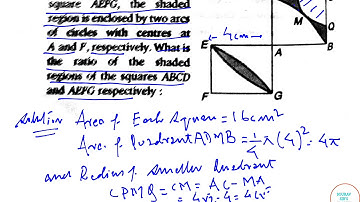 square AEFG, the shaded
region is enclosed by two arcs
of circles with centres at
A and F, respectively. What is
the ratio of the shaded
regions of the squares ABCD
and AEFG respectively :
M
Q
E
4cm
A
B
F
G
Solution Area of Each Square = 16cm²
Area of Quadrant ADMB = 1/4 π(4)² = 4π
and Radius of smaller Quadrant
CPMQ = CM = AC - MA
= 4√2 - 4 = 4(√2